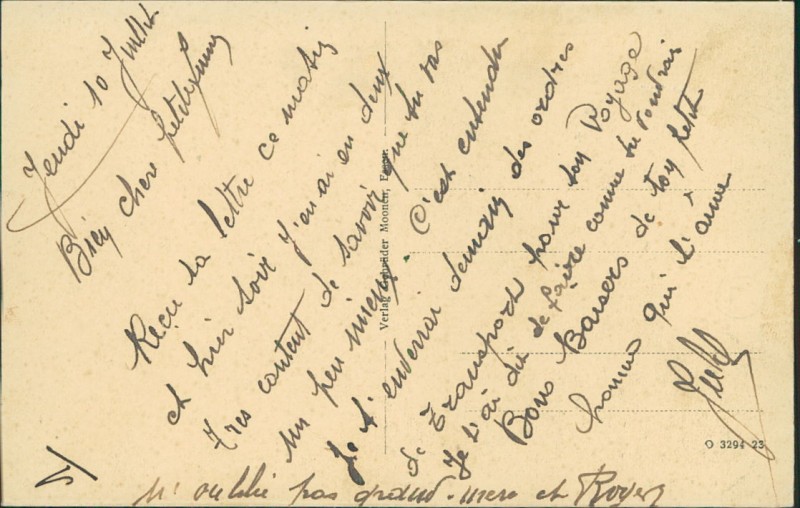 Jeudi 10 Juillet
Bien chere petite
Reçu ta lettre ce matin
et hier soir j'en ai eu deux
Tres content de savoir que tu vas
un peu mieux C'est entendu
Je t'enverrai demain des ordres
de Transport pour ton Voyage
Je t'ai dit de faire comme tu voudrais
Bons Baisers de ton petit
homme qui t'aime
N'oublie pas grand-mere et Roger
Verlag Schröder Moonen,
O 3294 23